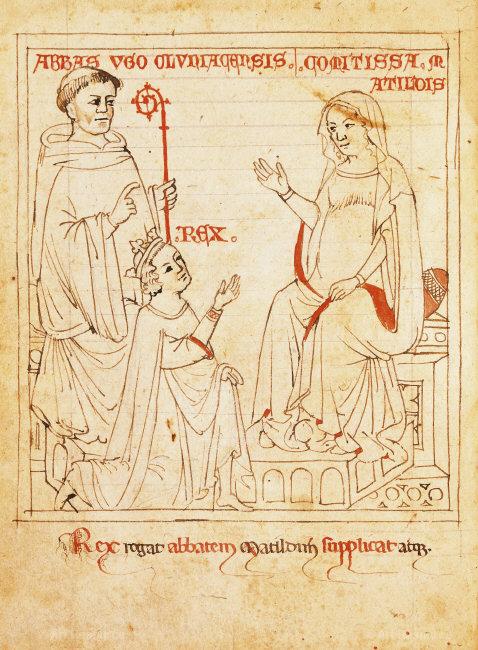 ABBAS VGO CLVNIACENSIS. COMITISSA. M
ATILDIS
.REX.
Rex rogat abbatem Matildim supplicat atq3.